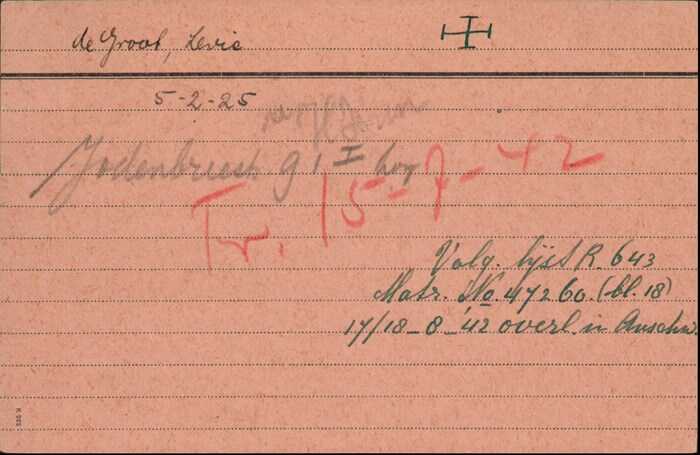 de Groot, Levie
5-2-25
Jodenbreestr 9 I hoog
Tr. 15-7-42
Volg. lijst R. 643
Matr. No. 47260. (bl. 18)
17/18-8-'42 overl. in Auschw.